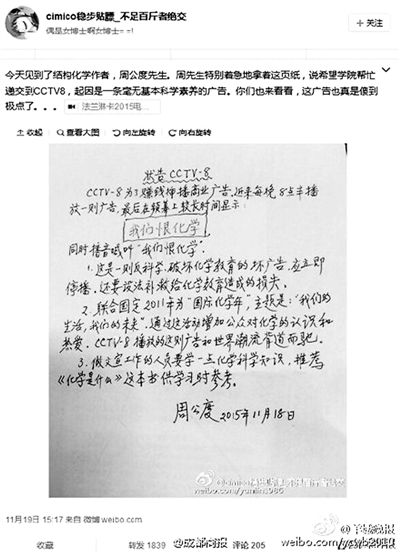 cimico稳步贴膘_不足百斤者绝交
+关注
偶是女博士啊女博士= =!
今天见到了结构化学作者，周公度先生。周先生特别着急地拿着这页纸，说希望学院帮忙
递交到CCTV8，起因是一条毫无基本科学素养的广告。你们也来看看，这广告也真是傻到
极点了。。。 法兰琳卡2015电...
收起 查看大图 向左旋转 向右旋转
状告CCTV-8
CCTV-8为了赚钱, 播商业广告, 近来每晚8点半播
放一则广告, 最后在频幕上较长时间显示:
我们恨化学
同时播音喊叫"我们恨化学".
1. 这是一则反科学, 破坏化学教育的坏广告, 应立即
停播, 还要设法补救给化学教育造成的损失.
2. 联合国定2011年为"国际化学年", 主题是:"我们的
生活, 我们的未来". 通过这活动增加公众对化学的认识和
热爱. CCTV-8播放的这则广告和世界潮流背道而驰.
3. 做文宣工作的人员要学一点化学科学知识, 推荐
《化学是什么》这本书供学习时参考.
周公度
2015年11月18日
weibo.com/yumin1986
11月19日 15:17 来自 微博 weibo.com
收藏 转发 1839 @成都商报 评论 205
weibo.com/ycwb2010